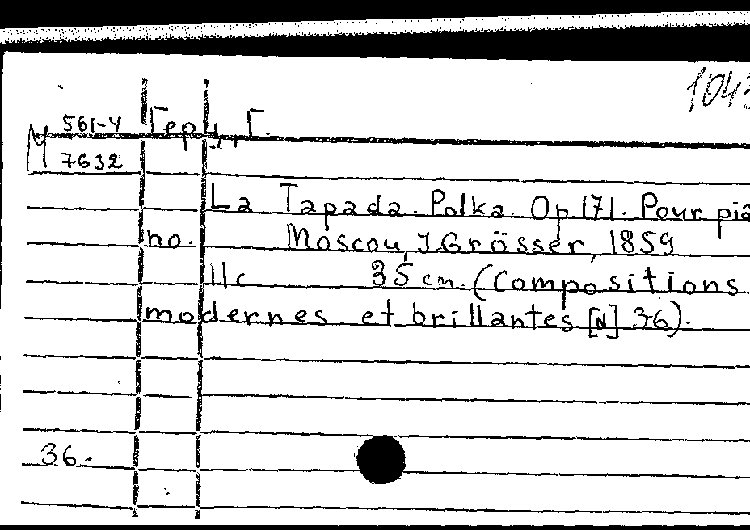 1043
561-4 Герц, Г.
М 7632
La Tapada. Polka. Op. 171. Pour pia
no. Moscou, J. Grösser, 1859
11с 35 cm. (Compositions
modernes et brillantes [N] 36).
36.